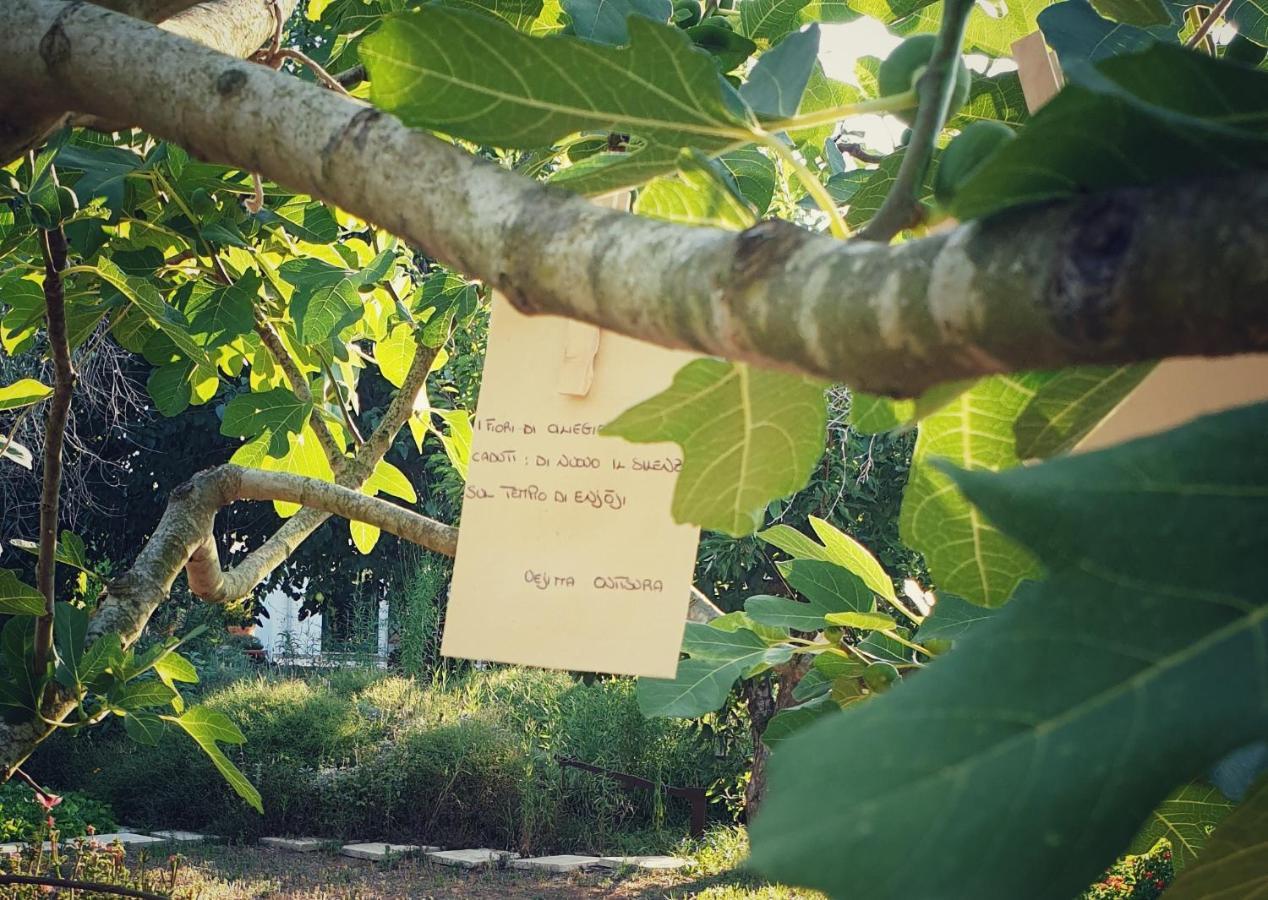 I FIORI DI CILIEGIO
CADUTI : DI NUOVO IL SILENZ
SUL TEMPIO DI ENJŌJI
UEJIMA ONITSURA